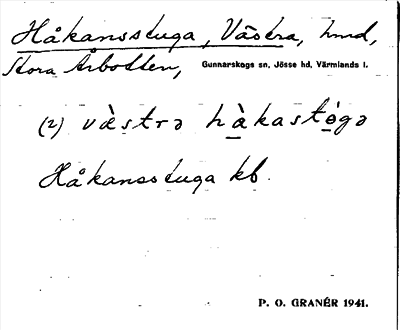 Håkansstuga, Västra, hmd,
Stora Årbotten, Gunnarskogs sn, Jösse hd, Värmlands l.
(2) västrə hàkastògə
Håkansstuga kb.
P. O. GRANÉR 1941.